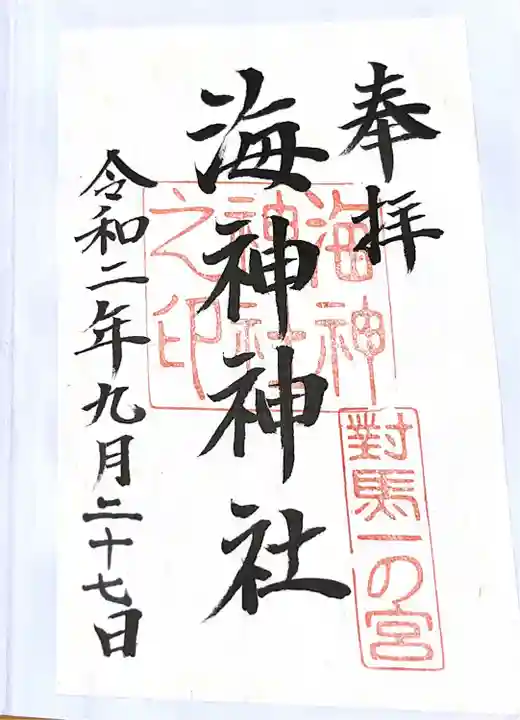 奉拝
對馬一の宮
海神神社
海神神社之印
令和二年九月二十七日